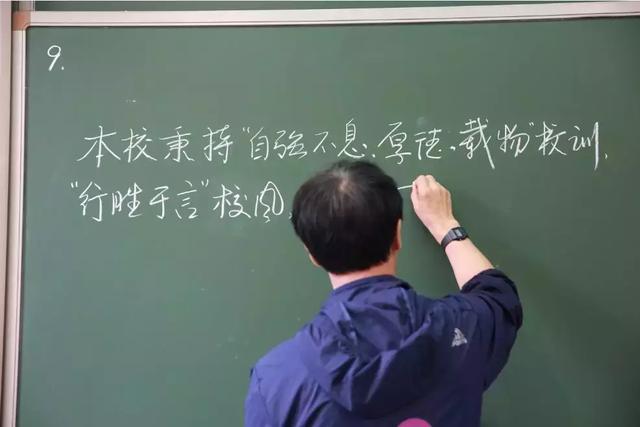 9.
本校秉持"自强不息、厚德、载物"校训,
"行胜于言"校风,